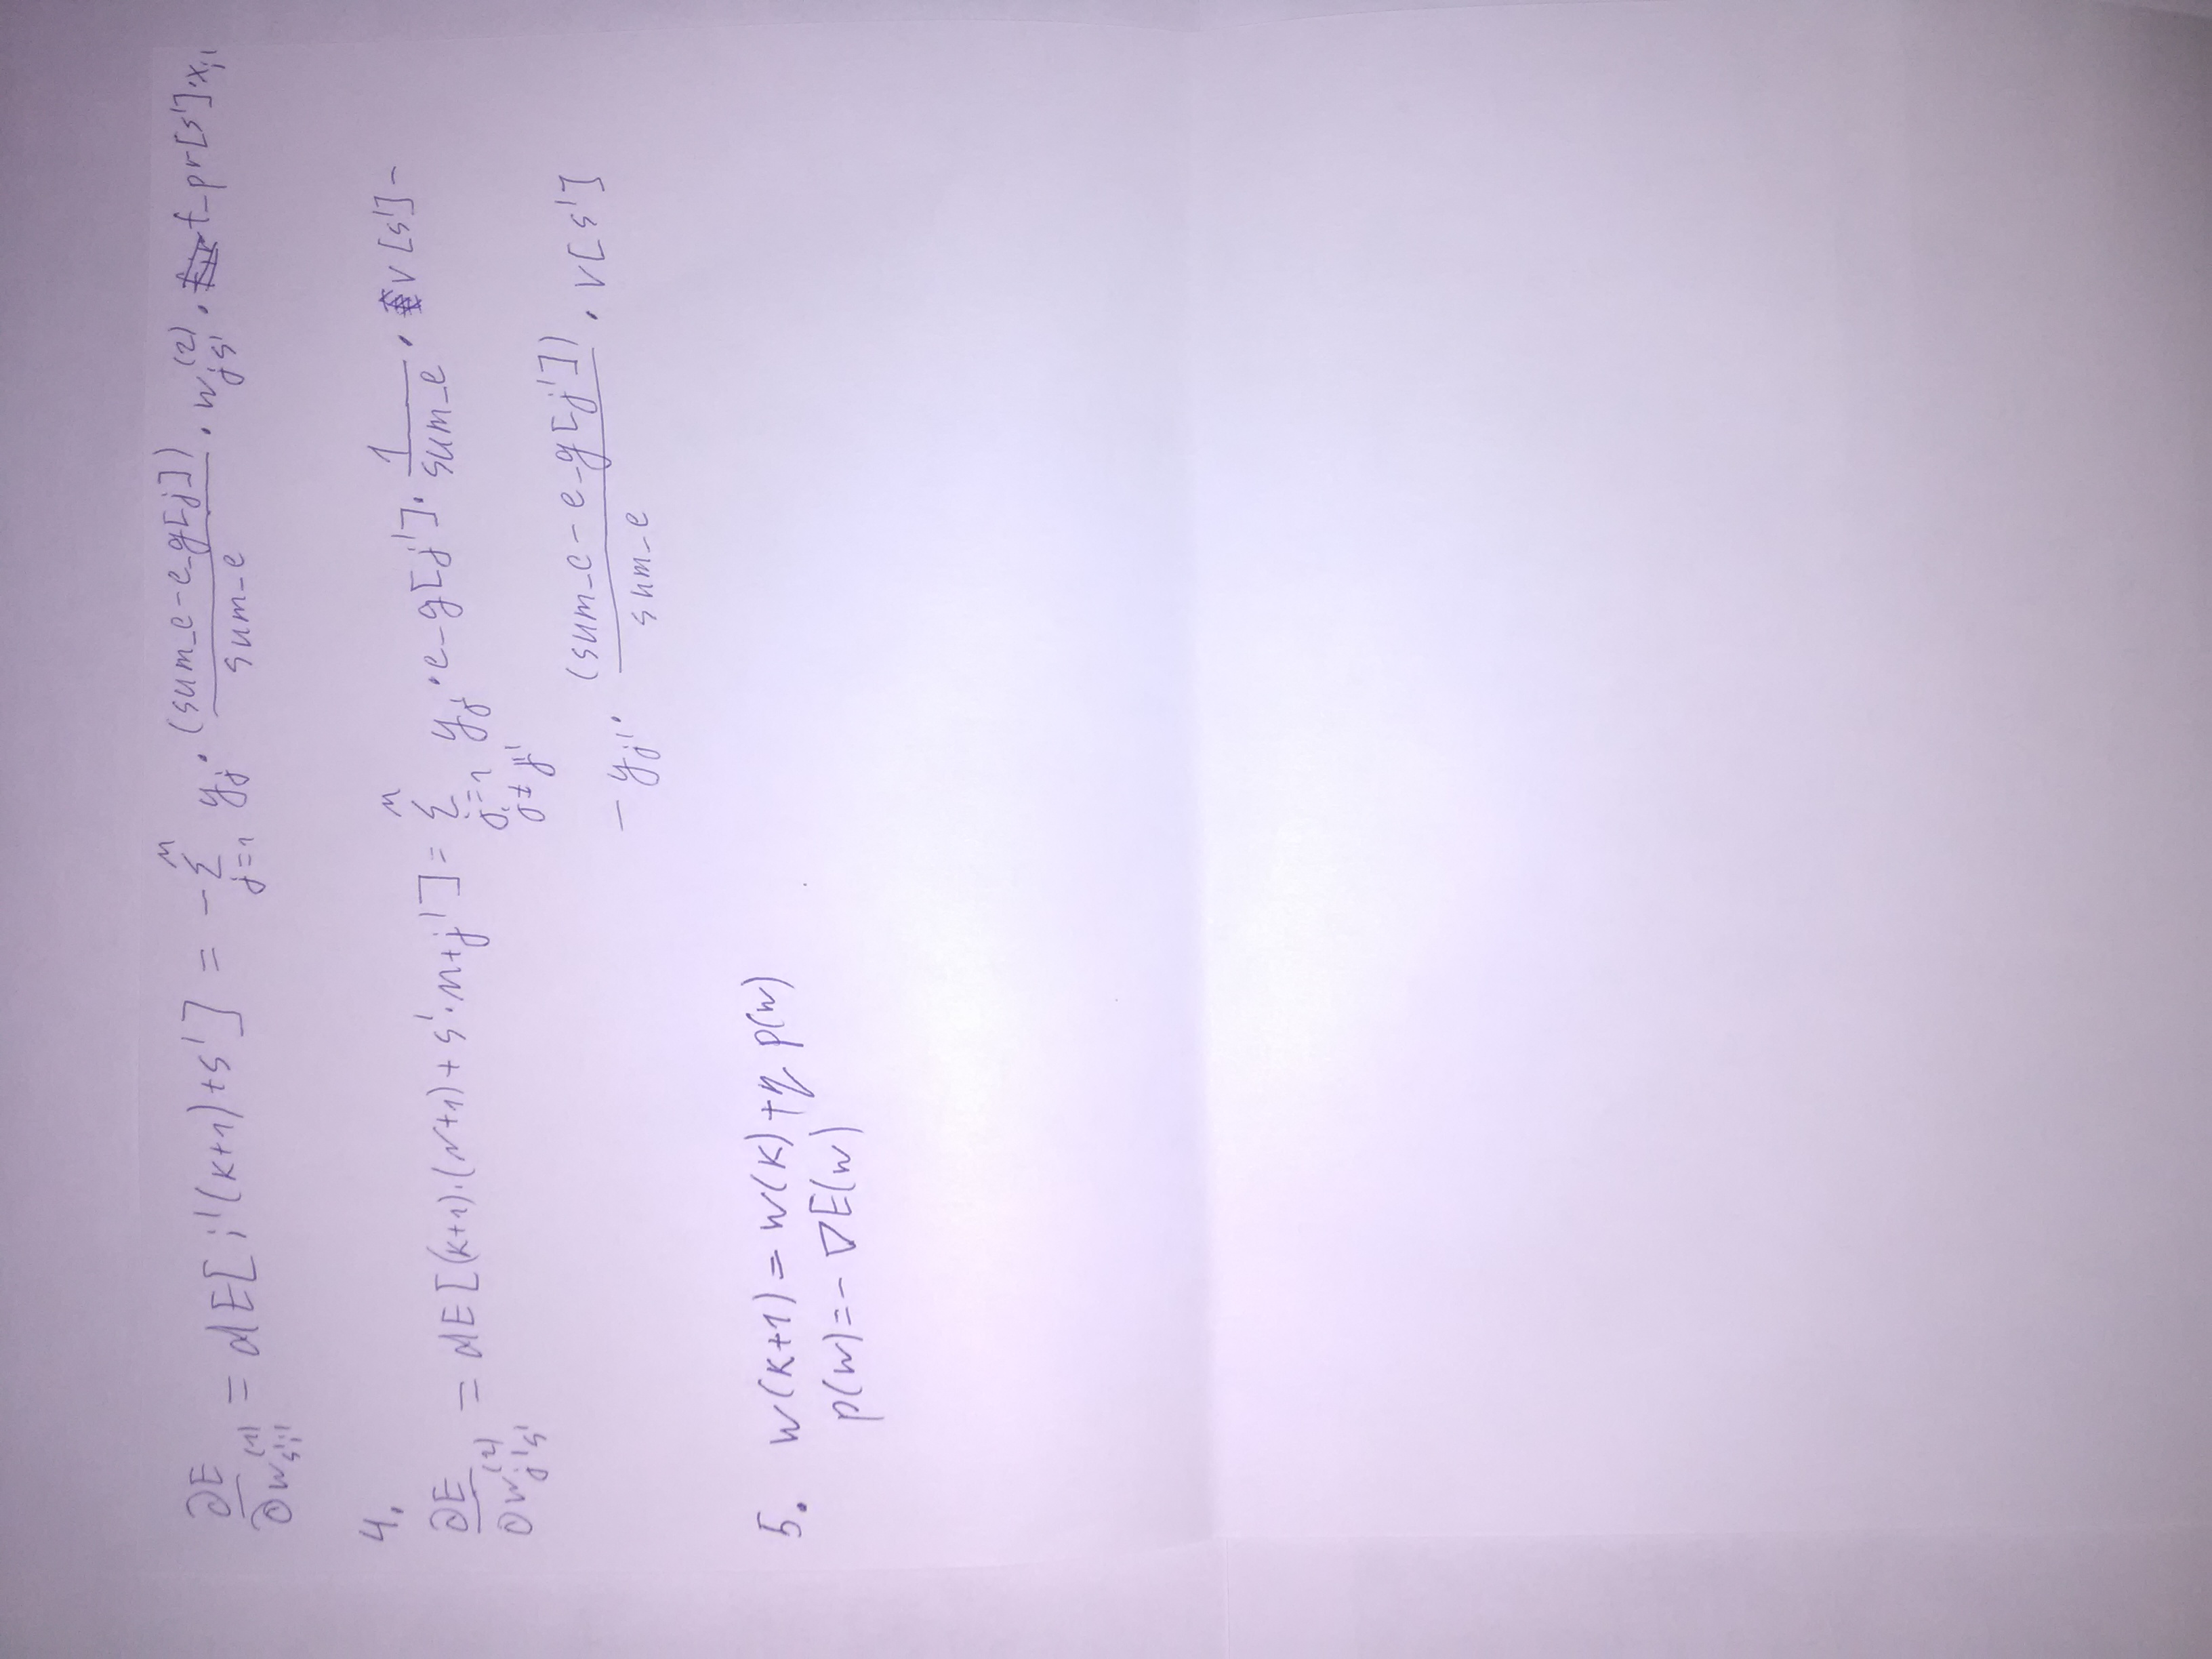 ∂E/∂w_{s'i'}^{(1)} = dE[i'(K+1)+s'] = -∑_{j=1}^{M} y_j · (sum_e-e_g[j])/sum_e · w_{js'}^{(2)} · f_pr[s']·x_{i'}
4.
∂E/∂w_{j's'}^{(2)} = dE[(K+1)·(N+1)+s'·M+j'] = ∑_{j=1, j≠j'}^{M} y_j · e_g[j'] · 1/sum_e · v[s'] -
- y_{j'} · (sum_e - e_g[j'])/sum_e · v[s']
5. w(K+1) = w(K)+η p(w)
p(w)=- ∇E(w)